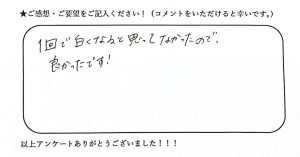 ★ご感想・ご要望をご記入ください!(コメントをいただけると幸いです。)
1回で白くなると思ってなかったので、
良かったです!
以上アンケートありがとうございました!!!